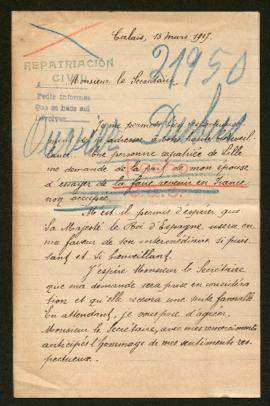 Calais, 15 mars 1917.
REPATRIACIÓN
CIVIL
21950
Monsieur le Secrétaire
Pedir informes
Que se hace así
Je me permets
votre haute
lance. Une personne rapatriée de Lille
me demande de la part de mon épouse
d'essayer de la faire revenir en France
non occupée.
M'est-il permis d'espérer que
Sa Majesté le Roi d'Espagne usera en
ma faveur de son intermédiaire si puis
sant et si bienveillant.
J'espère Monsieur le Secrétaire
que ma demande sera prise en considéra
tion et qu'elle recevra une suite favorable.
En attendant, je vous prie d'agréer,
Monsieur le Secrétaire, avec mes remerciements
anticipés l'hommage de mes sentiments res
pectueux.